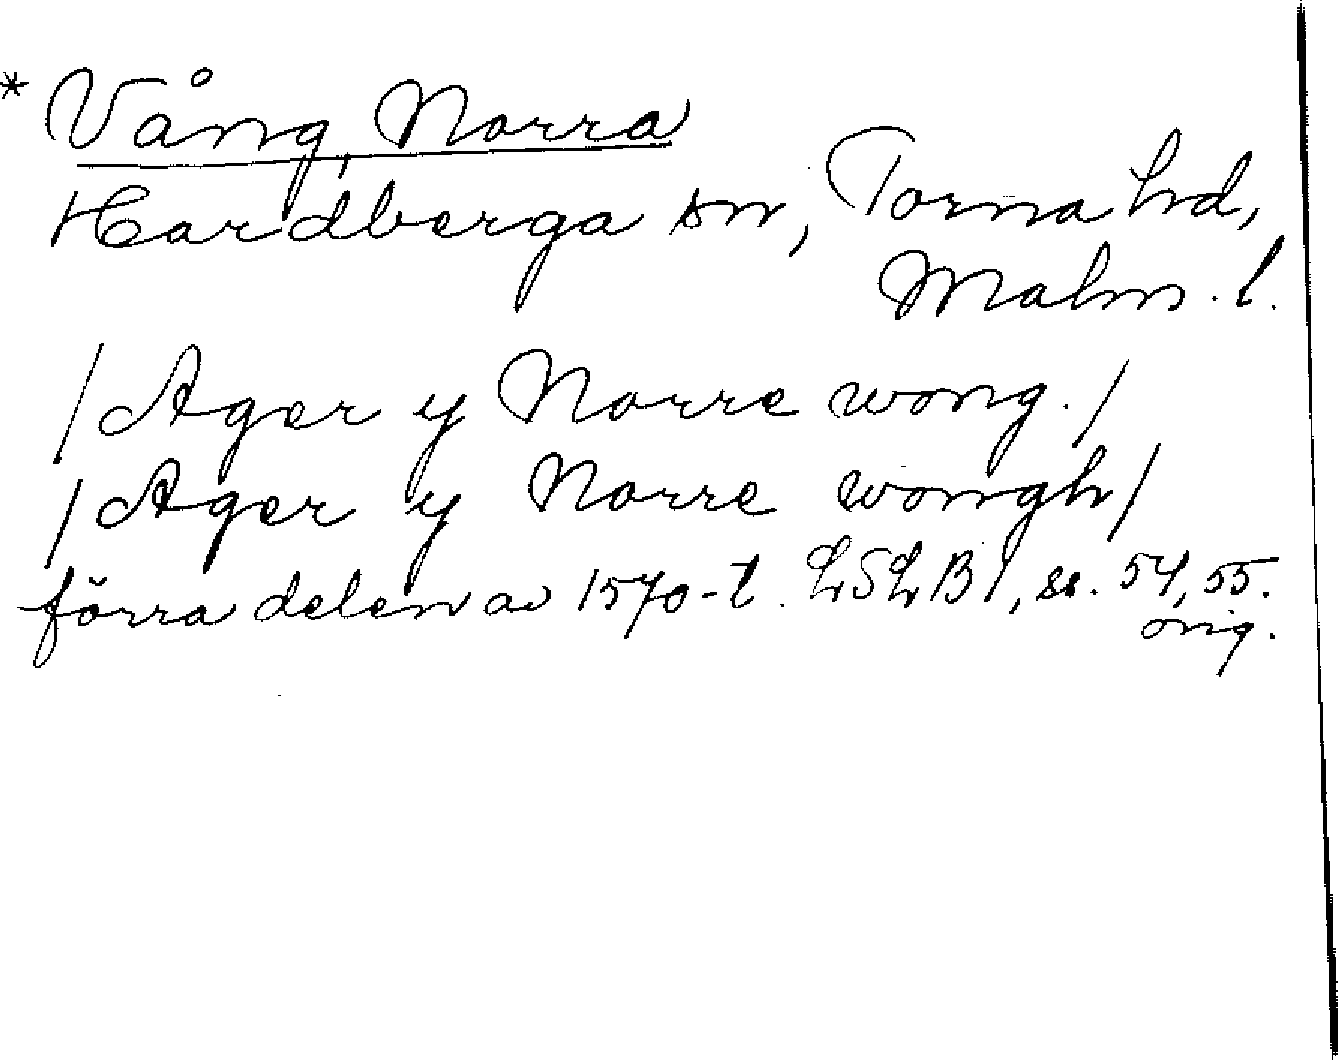 * Vång, Norra
Hardeberga sn, Torna hd,
Malm. l.
/Ager y Norre wong./
/Ager y Norre wongh/
förra delen av 1570-t. LSLB 1, ss. 54, 55.
orig.